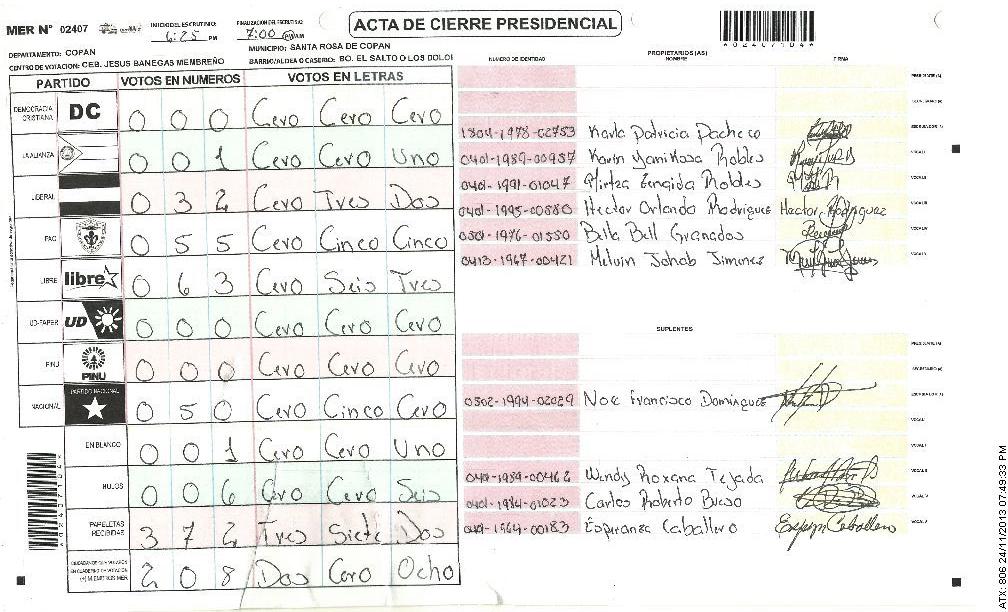 ACTA DE CIERRE PRESIDENCIAL
MER N° 02407
INICIO DEL ESCRUTINIO: 6:25 PM
FINALIZACION DEL ESCRUTINIO: 7:00 PM AM
*02407104*
DEPARTAMENTO: COPAN
MUNICIPIO: SANTA ROSA DE COPAN
CENTRO DE VOTACION: CEB. JESUS BANEGAS MEMBREÑO
BARRIO/ALDEA O CASERIO: BO. EL SALTO O LOS DOLOI
PARTIDO VOTOS EN NUMEROS VOTOS EN LETRAS
DEMOCRACIA CRISTIANA DC 0 0 0 Cero Cero Cero
LA ALIANZA 0 0 1 Cero Cero Uno
LIBERAL 0 3 2 Cero Tres Dos
PAC 0 5 5 Cero Cinco Cinco
LIBRE libre 0 6 3 Cero Seis Tres
UD-FAPER UD 0 0 0 Cero Cero Cero
PINU PINU 0 0 0 Cero Cero Cero
NACIONAL PARTIDO NACIONAL 0 5 0 Cero Cinco Cero
EN BLANCO 0 0 1 Cero Cero Uno
NULOS 0 0 6 Cero Cero Seis
PAPELETAS RECIBIDAS 3 7 2 Tres Siete Dos
2 0 8 Dos Cero Ocho
PROPIETARIOS (AS)
NUMERO DE IDENTIDAD NOMBRE FIRMA
PRESIDENTE (A)
SECRETARIO (A)
1804-1978-02753 Karla Patricia Pacheco ESCRUTADOR (A)
0401-1989-00957 Karin Yamileth Robles VOCAL I
0401-1991-01047 Mirtza Zenaida Robles VOCAL II
0401-1995-00880 Hector Orlando Rodriguez Hector Rodriguez VOCAL III
0501-1976-01550 Bella Bell Granados VOCAL IV
0413-1967-00421 Melvin Johab Jimenez VOCAL V
SUPLENTES
PRESIDENTE (A)
SECRETARIO (A)
0502-1994-02029 Noe Francisco Dominguez ESCRUTADOR (A)
VOCAL I
VOCAL II
0401-1989-00462 Wendy Roxana Tejada VOCAL III
0401-1984-01023 Carlos Roberto Bueso VOCAL IV
0401-1964-00183 Esperanza Caballero VOCAL V
*02407104*
ATX: 806 24/11/2013 07:49:33 PM